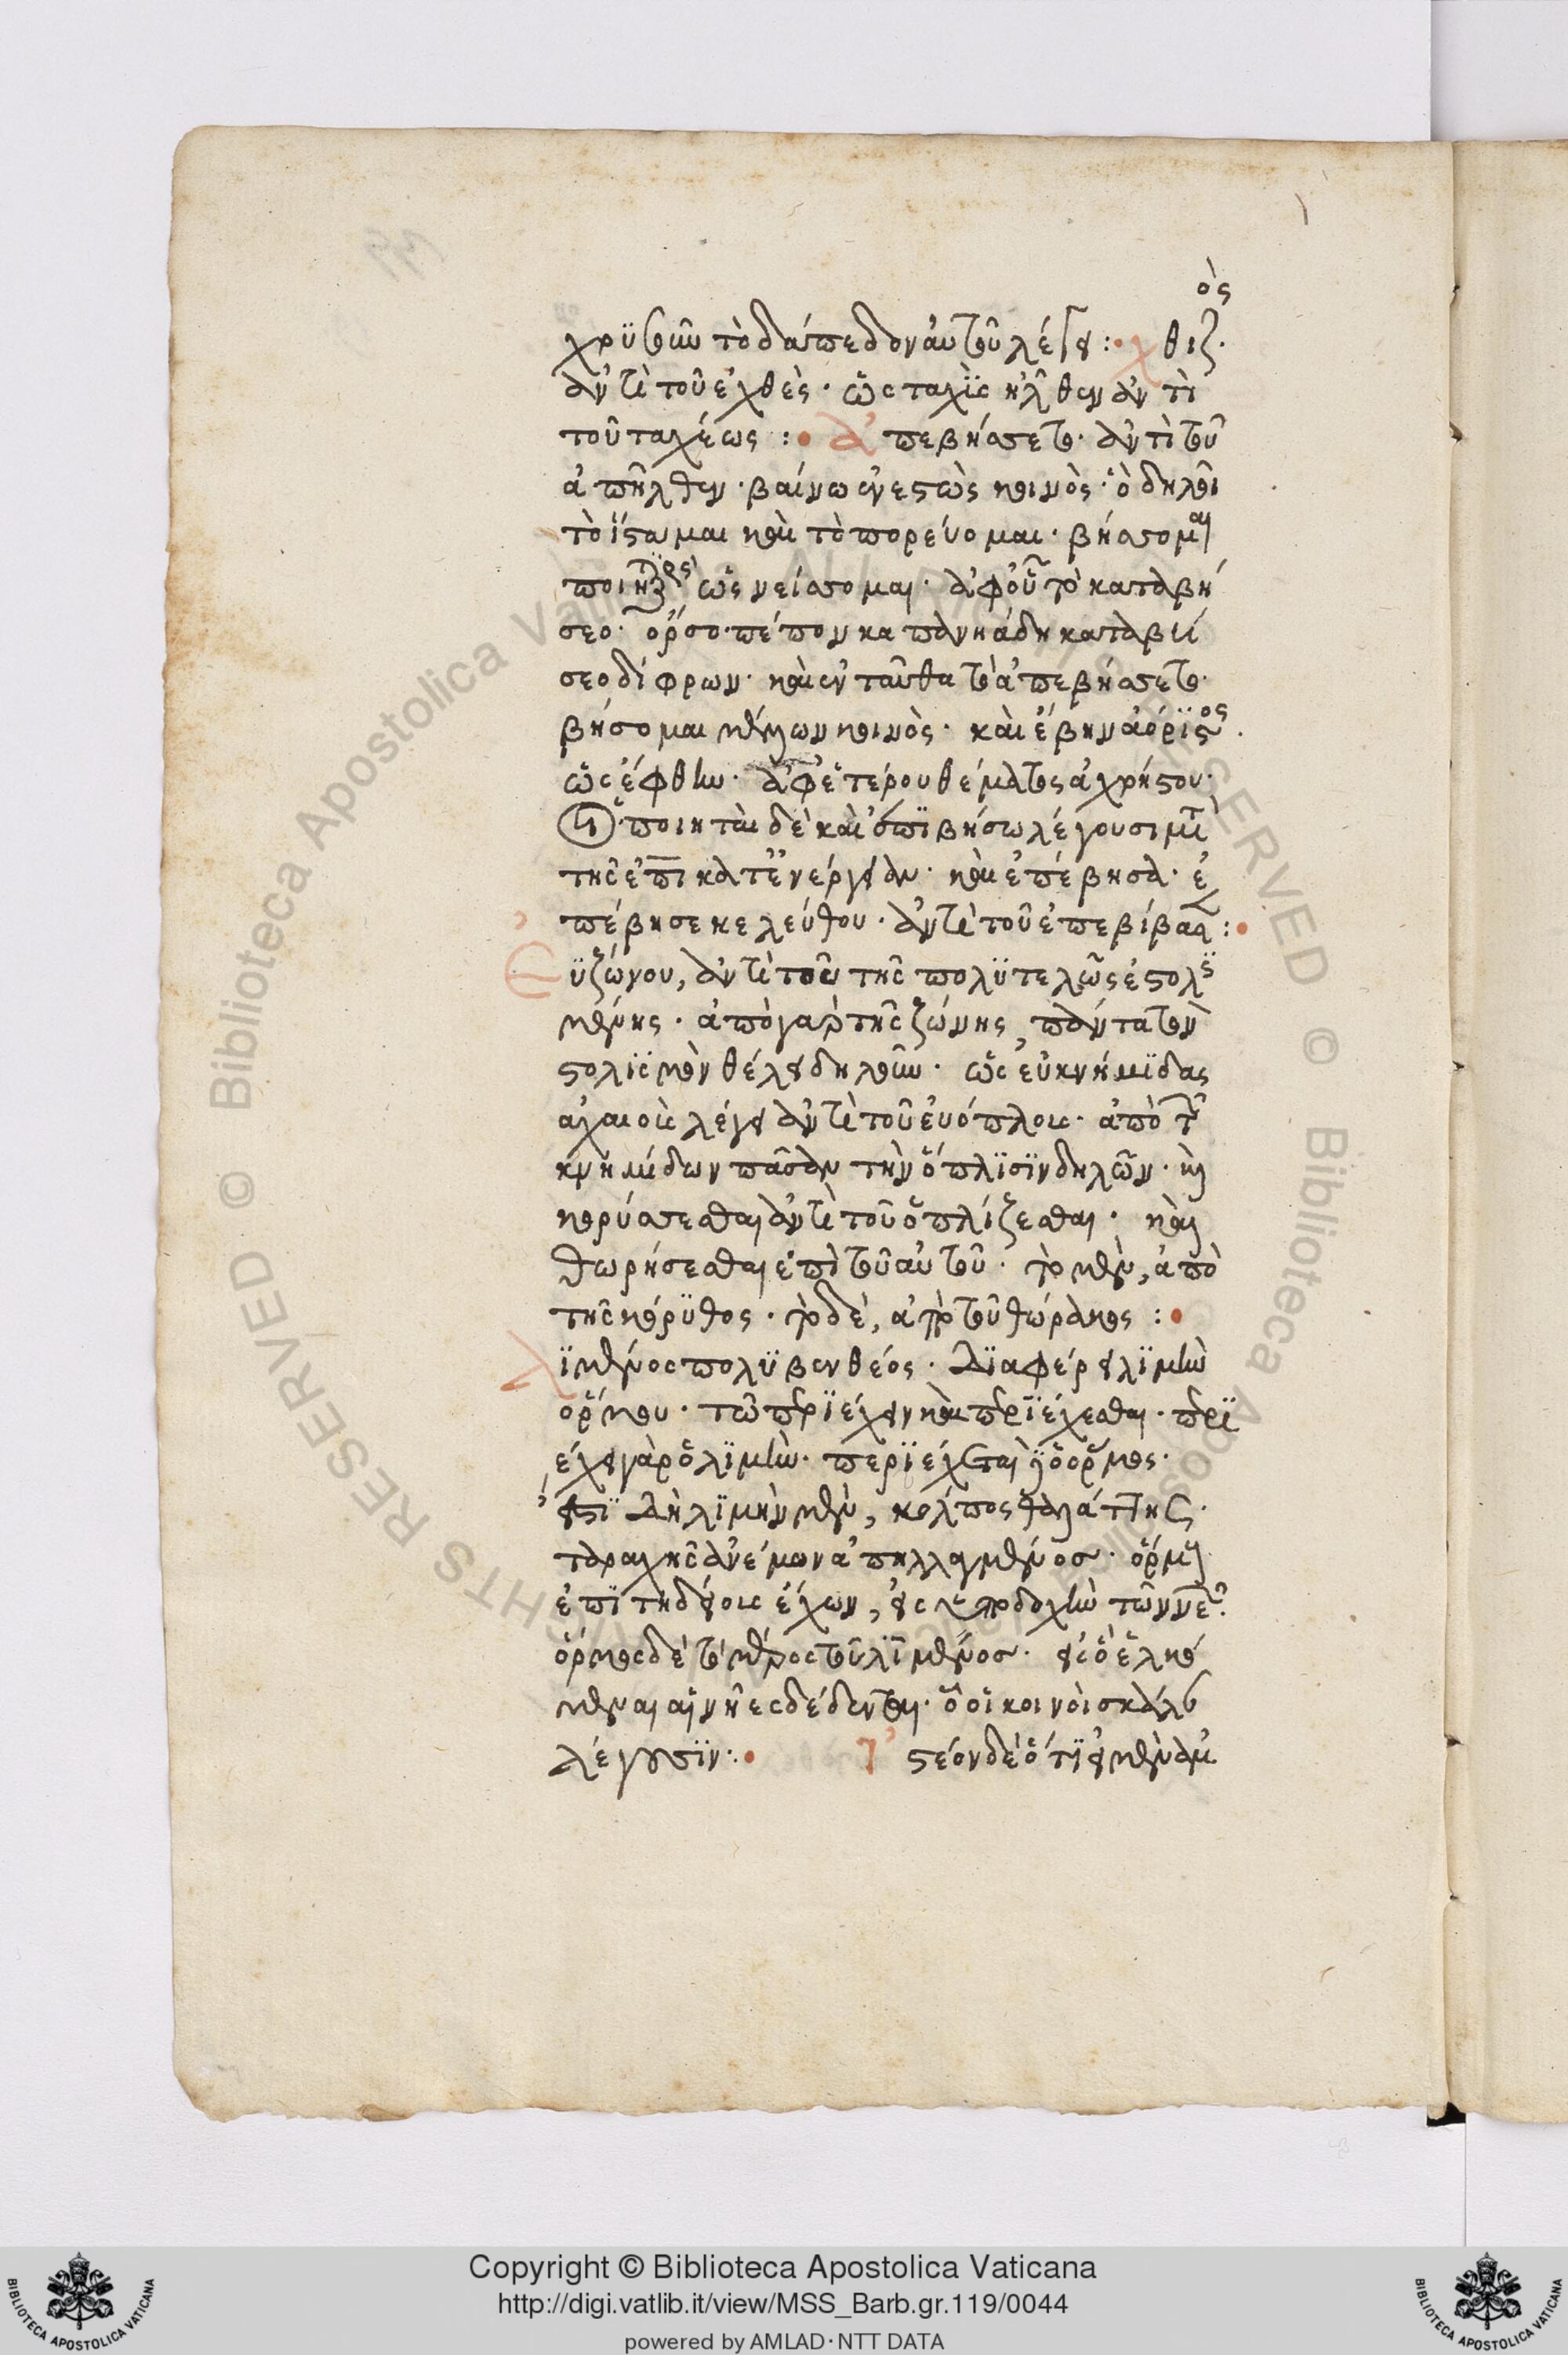 ὸς
χρϋσοῦν τὸ δάπεδον αὐτοῦ λέγει :· χθιζ·
ἀντὶ τοῦ ἐχθὲς · ὡς ταχὺς ἦλθεν ἀντὶ
τοῦ ταχέως :· ἀπεβήσετο · ἀντὶ τοῦ
ἀπῆλθεν · βαίνω ἐνεστὼς κοινὸς · ὃ δηλοῖ
τὸ ἵσταμαι καὶ τὸ πορεύομαι · βήσομαι
ὡς νείσομαι · ἀφ' οὗ τὸ καταβή
σεο · ὄρσο πέπον καπανηάδη καταβή
σεο δίφρων · καὶ ἐνταῦθα τὸ ἀπεβήσετο ·
βήσομαι μέλλων κοινὸς · καὶ ἔβην ἀόριστος ·
ὡς ἔφθην · ἀφ' ἑτέρου θέματος ἀχρήστου ·
οἱ ποιηταὶ δὲ καὶ ἐπϊβήσω λέγουσι μετὰ
τῆς ἐπι κατ' ἐνέργειαν · καὶ ἐπέβησα · ἐ
πέβησε κελεύθου · ἀντὶ τοῦ ἐπεβίβασεν :·
Εϋζώνου, ἀντὶ τοῦ τῆς πολϋτελῶς ἐστολϊσ
μένης · ἀπὸ γὰρ τῆς ζώνης, πάντα τὸν
στολϊσμὸν θέλει δηλοῦν · ὡς εὐκνήμϊδας
ἀχαιοὺς λέγει ἀντὶ τοῦ εὐόπλους · ἀπὸ τῶν
κνημίδων πᾶσαν τὴν ὅπλϊσϊν δηλῶν · καὶ
κορύσσεσθαι ἀντὶ τοῦ ὁπλίζεσθαι · καὶ
θωρήσεσθαι ἐπὶ τοῦ αὐτοῦ · τὸ μὲν, ἀπὸ
τῆς κόρϋθος · τὸ δὲ, ἀπὸ τοῦ θώρακος :·
Λϊμένος πολϋβενθέος · Διαφέρει λϊμὴν
ὅρμου · τῷ περϊέχειν καὶ περϊέχεσθαι · περϊ
έχει γὰρ ὁ λϊμὴν · περϊέχεται ὁ ὅρμος ·
ἔστϊ δὴ λϊμὴν μὲν, κόλπος θαλάττης ·
ταραχῆς ἀνέμων ἀπηλλαγμένος · ὅρμους
ἐπϊτηδείους ἔχων, εἰς ὑποδοχὴν τῶν νεῶν ·
ὅρμος δὲ τὸ μέρος τοῦ λϊμένος · εἰς ὃ ἑλκό
μεναι αἱ νῆες δέδενται · ὃ οἱ κοινοὶ σκάλαν
λέγουσϊν :· Ἰστέον δὲ ὅτϊ εἰ μὲν ἀμ